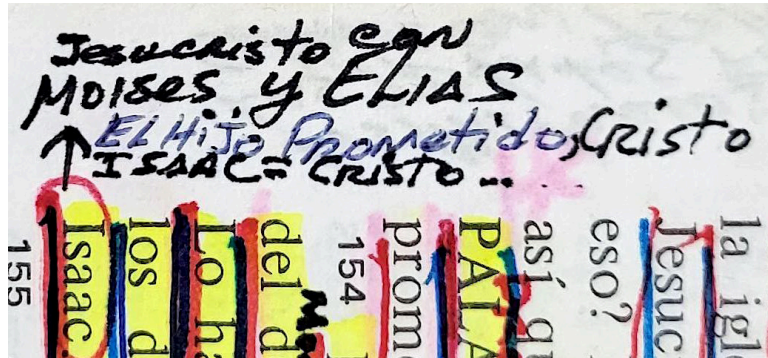 Jesucristo con
MOISES y ELIAS
EL HIJO PROMETIDO, CRISTO
ISAAC = CRISTO...
la igl
Jesuc
eso?
así qu
PALA
prom
154
del d
Lo ha
los d
Isaac.
155